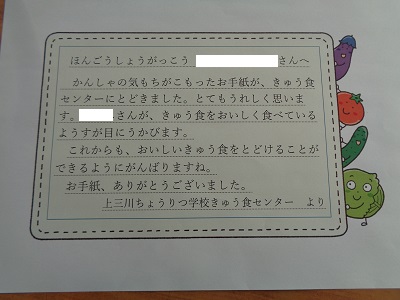 ほんごうしょうがっこう さんへ
かんしゃの気もちがこもったお手紙が、きゅう食
センターにとどきました。とてもうれしく思いま
す。 さんが、きゅう食をおいしく食べている
ようすが目にうかびます。
これからも、おいしいきゅう食をとどけることが
できるようにがんばりますね。
お手紙、ありがとうございました。
上三川ちょうりつ学校きゅう食センター より